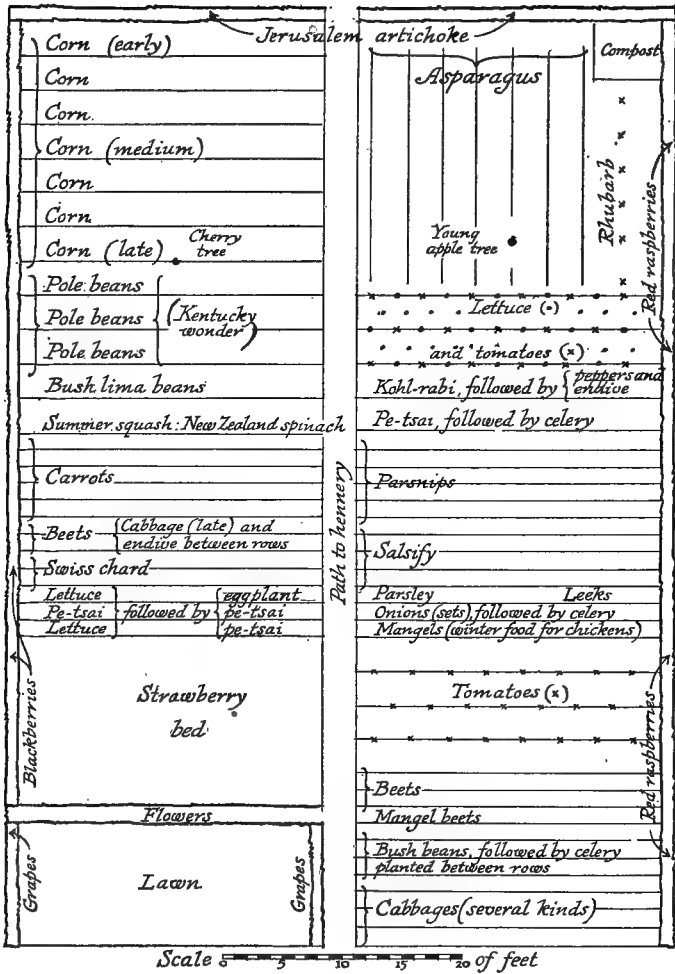 Jerusalem artichoke
Corn (early)
Corn
Corn.
Corn (medium)
Corn
Corn
Corn (late)
Cherry
tree
Pole beans
Pole beans
Pole beans
(Kentucky
wonder)
Bush lima beans
Summer squash: New Zealand spinach
Carrots
Beets
Cabbage (late) and
endive between rows
Swiss chard
Lettuce
Pe-tsai
Lettuce
followed by
eggplant
pe-tsai
pe-tsai
Strawberry
bed
Blackberries
Flowers
Grapes
Lawn
Grapes
Path to hennery
Compost
Asparagus
Rhubarb
Red raspberries
Young
apple tree
Lettuce (•)
and tomatoes (x)
Kohl-rabi, followed by
peppers and
endive
Pe-tsai, followed by celery
Parsnips
Salsify
Parsley Leeks
Onions (sets), followed by celery
Mangels (winter food for chickens)
Tomatoes (x)
Red raspberries
Beets
Mangel beets
Bush beans, followed by celery
planted between rows
Cabbages (several kinds)
Scale 0 5 10 15 20 of feet